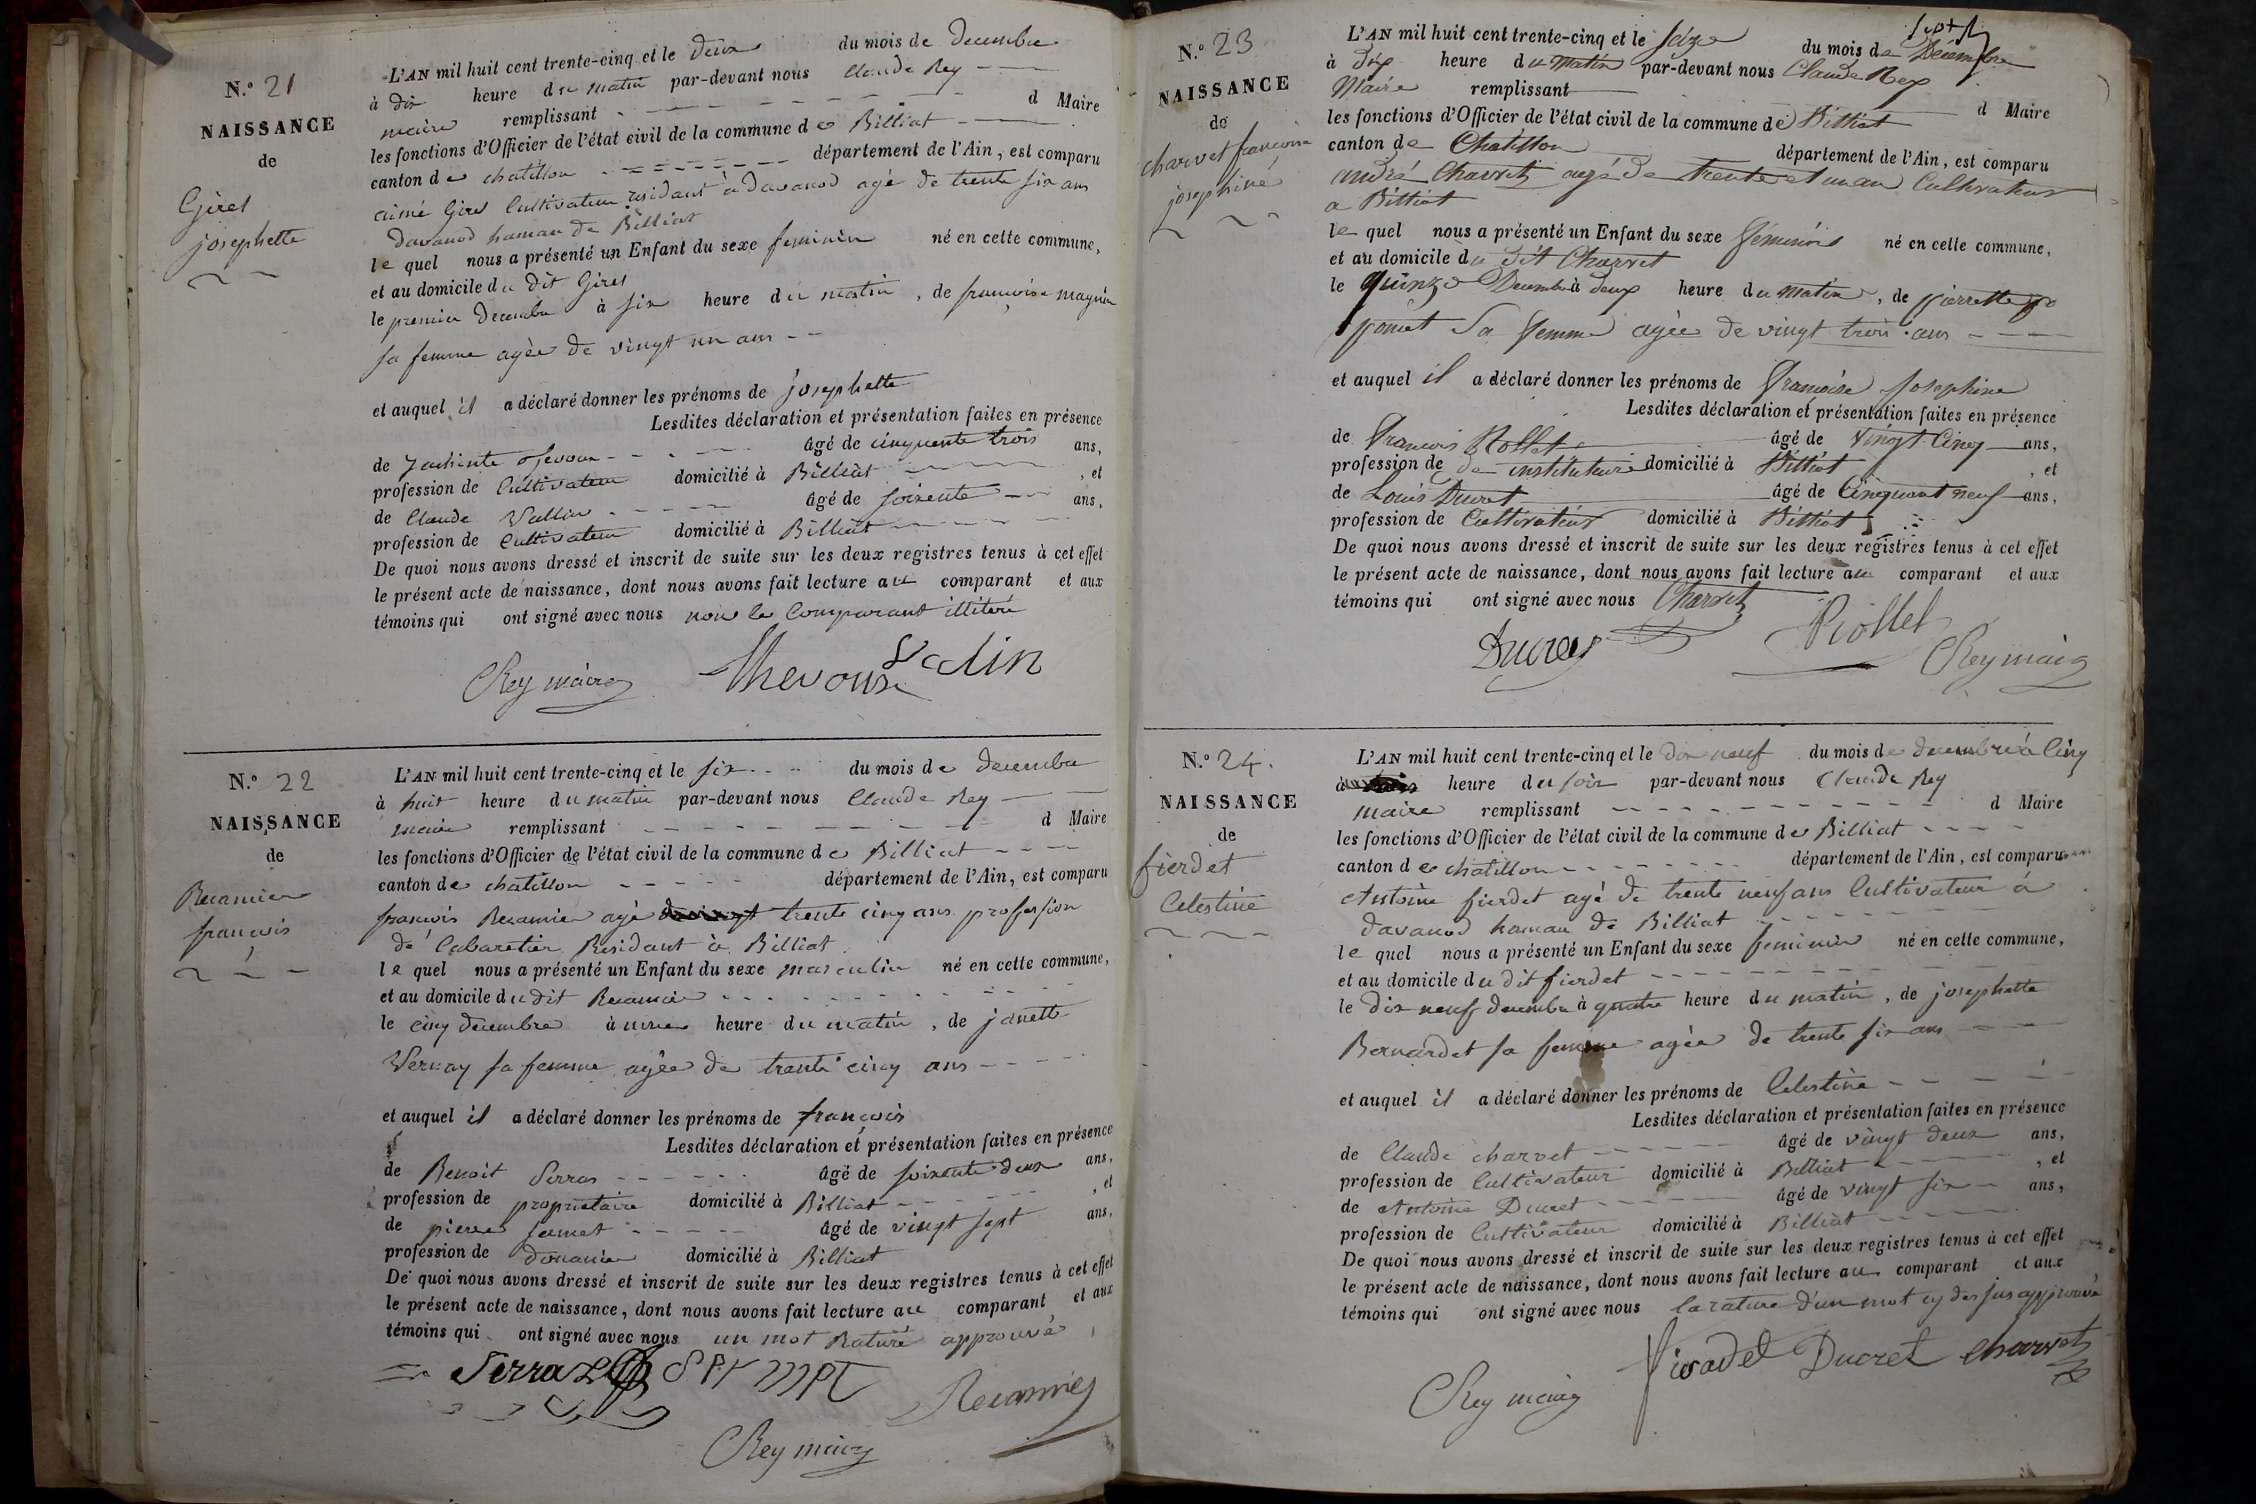 N.° 21
NAISSANCE
de
Girel
josephette
L'AN mil huit cent trente-cinq et le deux du mois de decembre
à dix heure du matin par-devant nous Claude Rey
maire remplissant d Maire
les fonctions d'Officier de l'état civil de la commune de Billiat
canton de chatillon département de l'Ain, est comparu
aimé Girel Cultivateur residant à davanod agé de trente six ans
davanod hamau de Billiat
le quel nous a présenté un Enfant du sexe feminin né en cette commune,
et au domicile du dit Girel
le premier decembre à six heure du matin, de françoise magnin
sa femme agée de vingt un ans
et auquel il a déclaré donner les prénoms de josephette
Lesdites déclaration et présentation faites en présence
de âgé de cinquente trois ans,
profession de Cultivateur domicilié à Billiat, et
de Claude Vallin âgé de soixente ans,
profession de Cultivateur domicilié à Billiat
De quoi nous avons dressé et inscrit de suite sur les deux registres tenus à cet effet
le présent acte de naissance, dont nous avons fait lecture au comparant et aux
témoins qui ont signé avec nous non le Comparant illiteré
Rey maire
N.° 22
NAISSANCE
de
Recamier
françois
L'AN mil huit cent trente-cinq et le six du mois de decembre
à huit heure du matin par-devant nous Claude Rey
maire remplissant d Maire
les fonctions d'Officier de l'état civil de la commune de Billiat
canton de chatillon département de l'Ain, est comparu
francois Recamier agé trente cinq ans profession
de Cabaretier Residant à Billiat
le quel nous a présenté un Enfant du sexe masculin né en cette commune,
et au domicile dudit Recamier
le cinq decembre à heure du matin, de janette
Vernay sa femme agée de trente cinq ans
et auquel il a déclaré donner les prénoms de françois
Lesdites déclaration et présentation faites en présence
de Benoit Serras âgé de soixente deux ans,
profession de propriétaire domicilié à Billiat, et
de pierre âgé de vingt sept ans,
profession de douanier domicilié à Billiat
De quoi nous avons dressé et inscrit de suite sur les deux registres tenus à cet effet
le présent acte de naissance, dont nous avons fait lecture au comparant et aux
témoins qui ont signé avec nous un mot Raturé approuvé
Recamier
Rey maire
N.° 23
NAISSANCE
de
charvet françoise
josephine
L'AN mil huit cent trente-cinq et le seize du mois de Décembre
à dix heure du matin par-devant nous Claude Rey
Maire remplissant d Maire
les fonctions d'Officier de l'état civil de la commune de Billiat
canton de Chatillon département de l'Ain, est comparu
andré Charvet agé de trente et un an Cultivateur
a Billiat
le quel nous a présenté un Enfant du sexe féminin né en cette commune,
et au domicile du dit Charvet
le quinze Decembre à deux heure du matin, de pierrette
poncet Sa femme agée de vingt trois ans
et auquel il a déclaré donner les prénoms de Françoise Josephine
Lesdites déclaration et présentation faites en présence
de François Rollet âgé de vingt cinq ans,
profession de de instituteur domicilié à Billiat, et
de Louis Ducret âgé de Cinquant neuf ans,
profession de Cultivateur domicilié à Billiat
De quoi nous avons dressé et inscrit de suite sur les deux registres tenus à cet effet
le présent acte de naissance, dont nous avons fait lecture au comparant et aux
témoins qui ont signé avec nous Charvet
Ducret Rollet Rey maire
N.° 24.
NAISSANCE
de
fierdet
Celestine
L'AN mil huit cent trente-cinq et le dix neuf du mois de decembre à Cinq
à heure du soir par-devant nous Claude Rey
maire remplissant d Maire
les fonctions d'Officier de l'état civil de la commune de Billiat
canton de chatillon département de l'Ain, est comparu
Antoine fierdet agé de trente neuf ans Cultivateur à
davanod hamau de Billiat
le quel nous a présenté un Enfant du sexe feminin né en cette commune,
et au domicile du dit fierdet
le dix neuf decembre à quatre heure du matin, de josephette
Bernardet sa femme agée de trente six ans
et auquel il a déclaré donner les prénoms de Celestine
Lesdites déclaration et présentation faites en présence
de Claude charvet âgé de vingt deux ans,
profession de Cultivateur domicilié à Billiat, et
de Antoine Ducret âgé de vingt six ans,
profession de Cultivateur domicilié à Billiat
De quoi nous avons dressé et inscrit de suite sur les deux registres tenus à cet effet
le présent acte de naissance, dont nous avons fait lecture au comparant et aux
témoins qui ont signé avec nous la rature d'un mot cy dessus approuvé
Ducret charvet
Rey maire